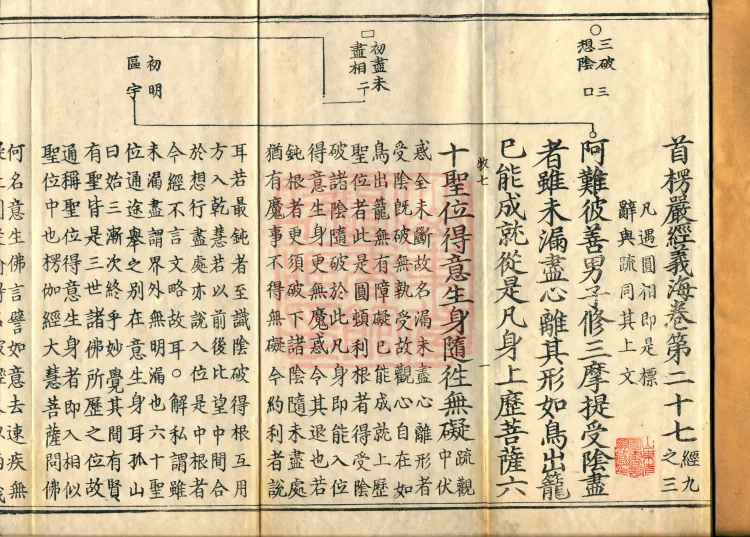 首楞嚴經義海卷第二十七 經九之三
凡遇圓相即是標
辭與疏同其上文
三破三
想陰口
阿難彼善男子修三摩提受陰盡
者雖未漏盡心離其形如鳥出籠
已能成就從是凡身上歷菩薩六
十聖位得意生身隨往無礙 疏觀中伏
初盡未
盡相二
惑全未斷故名漏未盡心離形者
受陰既破無執受故觀心自在如
鳥出籠無有障礙已能成就上歷
聖位者此是圓頓利根者得受陰
破諸陰隨破於此凡身即能入位
得意生身更無魔惑令其退也若
鈍根者更須破下諸陰隨未盡處
猶有魔事不得無礙今約利者說
初明
區宇
耳若最鈍者至識陰破得根互用
方入乾慧若以前後比望中間合
於想行盡處亦說入位是中根者
今經不言文略故耳○解私謂雖
未漏盡謂界外無明漏也六十聖
位通途舉之別在意生身耳孤山
曰始三漸次終乎妙覺其間有賢
有聖皆是三世諸佛所歷之位故
通稱聖位得意生身者即入相似
聖位中也楞伽經大慧菩薩問佛
何名意生佛言譬如意去速疾無